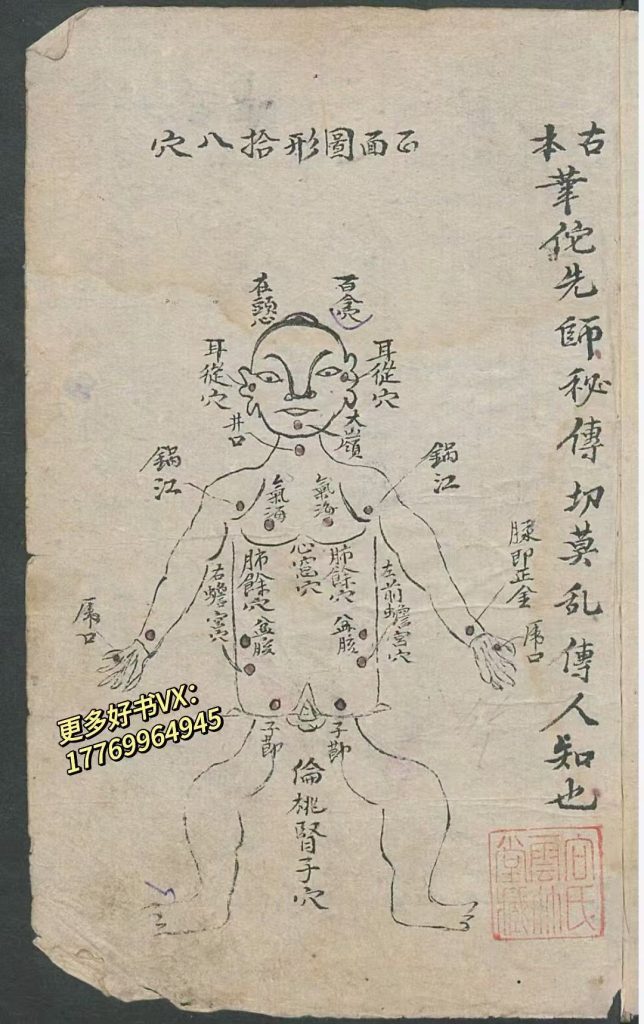 古本華佗先師秘傳切莫乱傳人知也
正面圖形拾八穴
百會穴
在頭心
耳從穴
耳從穴
井口
大嶺
鍋江
鍋江
氣海
氣海
心窩穴
肺餘穴
肺餘穴
左前蟾宮穴
右蟾宮穴
盆胲
盆胲
脉即正金
虎口
虎口
子節
子節
倫桃腎子穴
更多好书VX：
17769964945